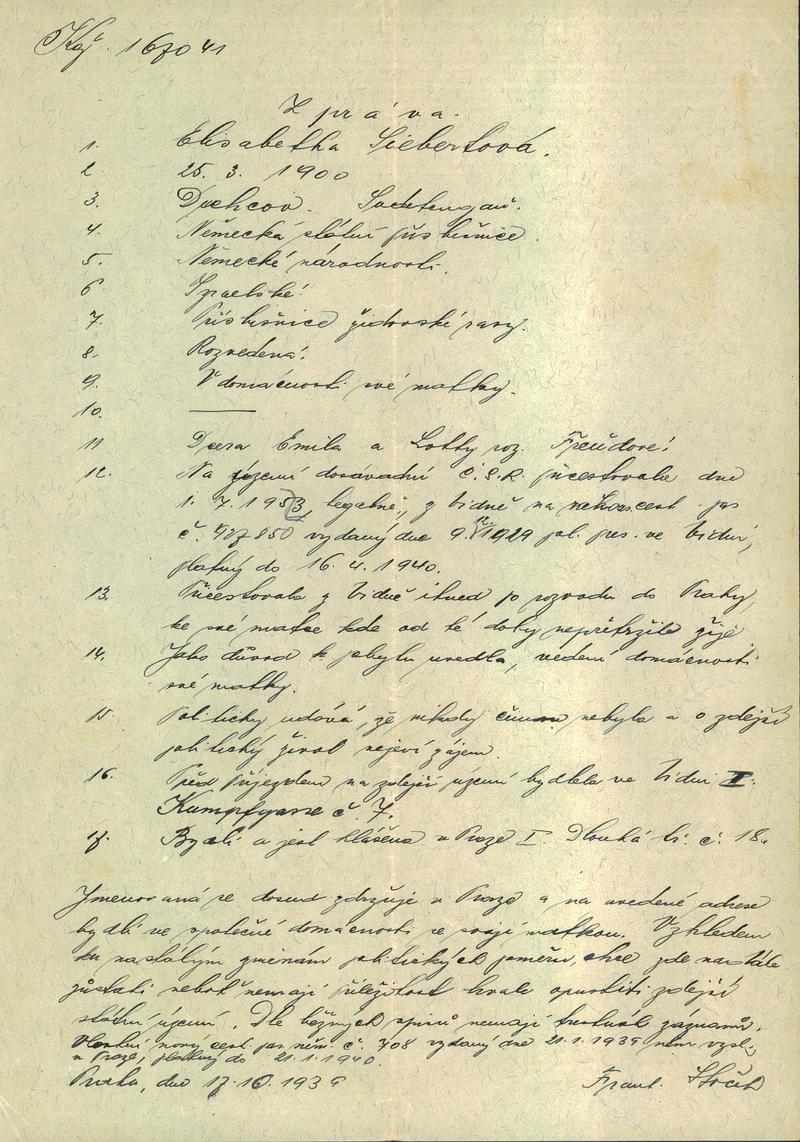 Kaj. 1670 41
Zpráva.
1. Elisabetha Siebertová.
2. 25. 3. 1900
3. Duchcov. Sudetengau.
4. Německá státní příslušnice.
5. Německé národnosti.
6 Israelské.
7. Příslušnice židovské rasy.
8. Rozvedená.
9. V domácnosti své matky.
10. ———
11 Dcera Emila a Lotty roz. Freudové.
12. Na území dosavadní Č.S.R. přicestovala dne
1. 7. 1933, legálně, z Vídně na cest. pas
č. 927850 vydaný dne 9. 1929 pol. pres. ve Vídni,
platný do 16. 4. 1940.
13. Přicestovala z Vídně ihned po rozvodu do Prahy,
ke své matce kde od té doby nepřetržitě žije.
14. Jako důvod k pobytu uvedla, vedení domácnosti
své matky.
15. Politicky udává, že nikdy činnou nebyla a o zdejší
politický život nejeví zájem.
16. Před příjezdem na zdejší území bydlela ve Vídni I.
Kumpfgasse č. 7.
17. Bydlí a jest hlášena v Praze I. Dlouhá tř. č. 18.
Jmenovaná se dosud zdržuje v Praze a na uvedené adrese
bydlí ve společné domácnosti se svojí matkou. Vzhledem
ku nastálým změnám politických poměrů, chce zde nastále
zůstati neboť nemají příležitost kvale opustiti zdejší
státní území. Dle běžných spisů nemají trestních záznamů.
Vlastní nový cest. pas něm. č. 708 vydaný dne 21.1.1939 něm. vysl.
v Praze, platný do 21.1.1940.
Praha, dne 17.10.1939 Frant.